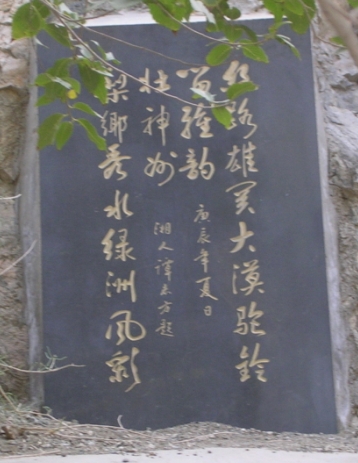 丝路雄关大漠驼铃
雅韵
庚辰年夏日
梁鄉秀水绿洲风彩
壮神州
湘人谭方题